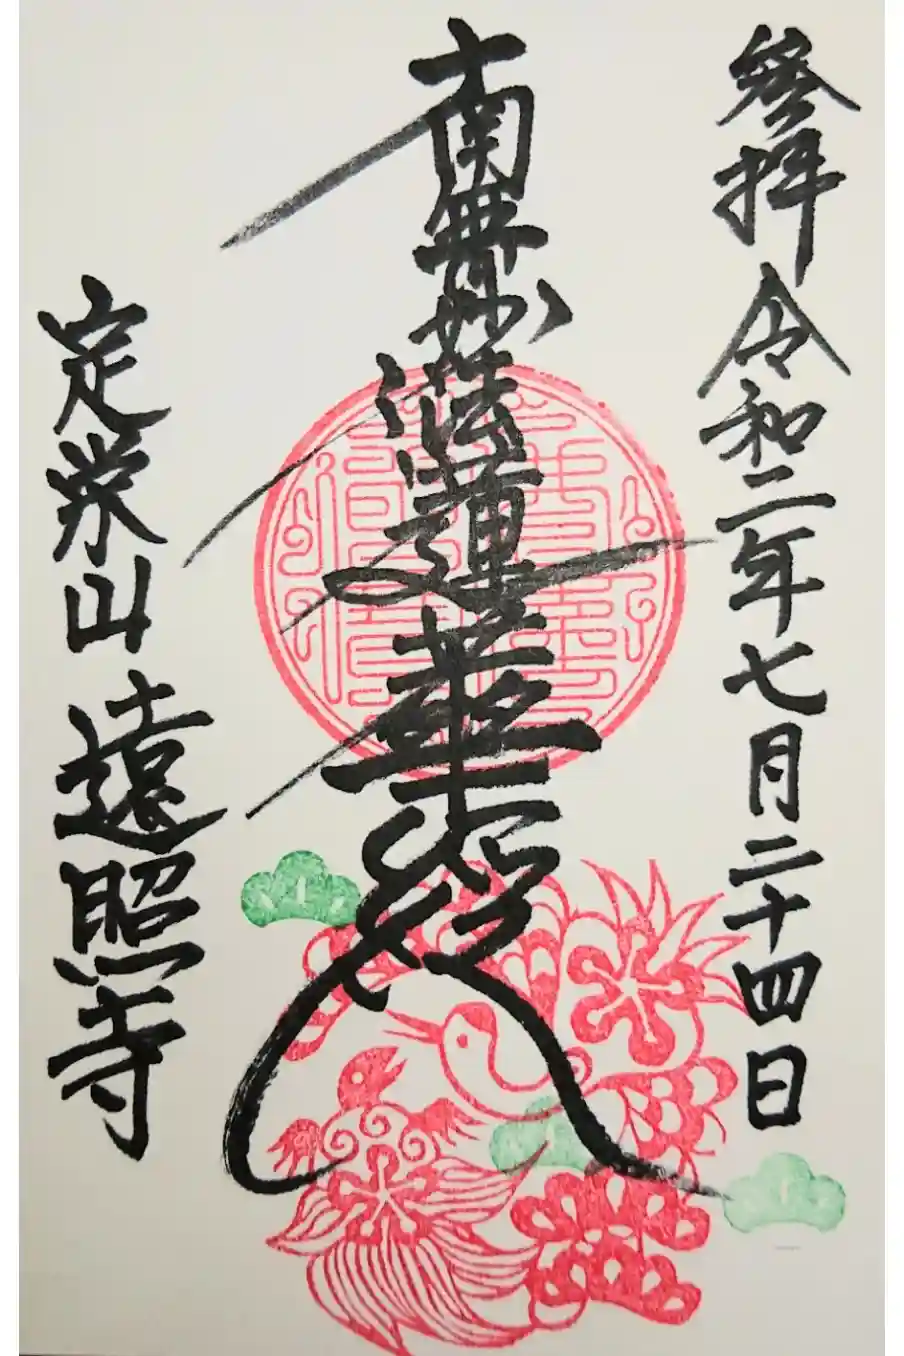 參拝 令和二年七月二十四日
南無妙法蓮華経
定栄山 遠照寺